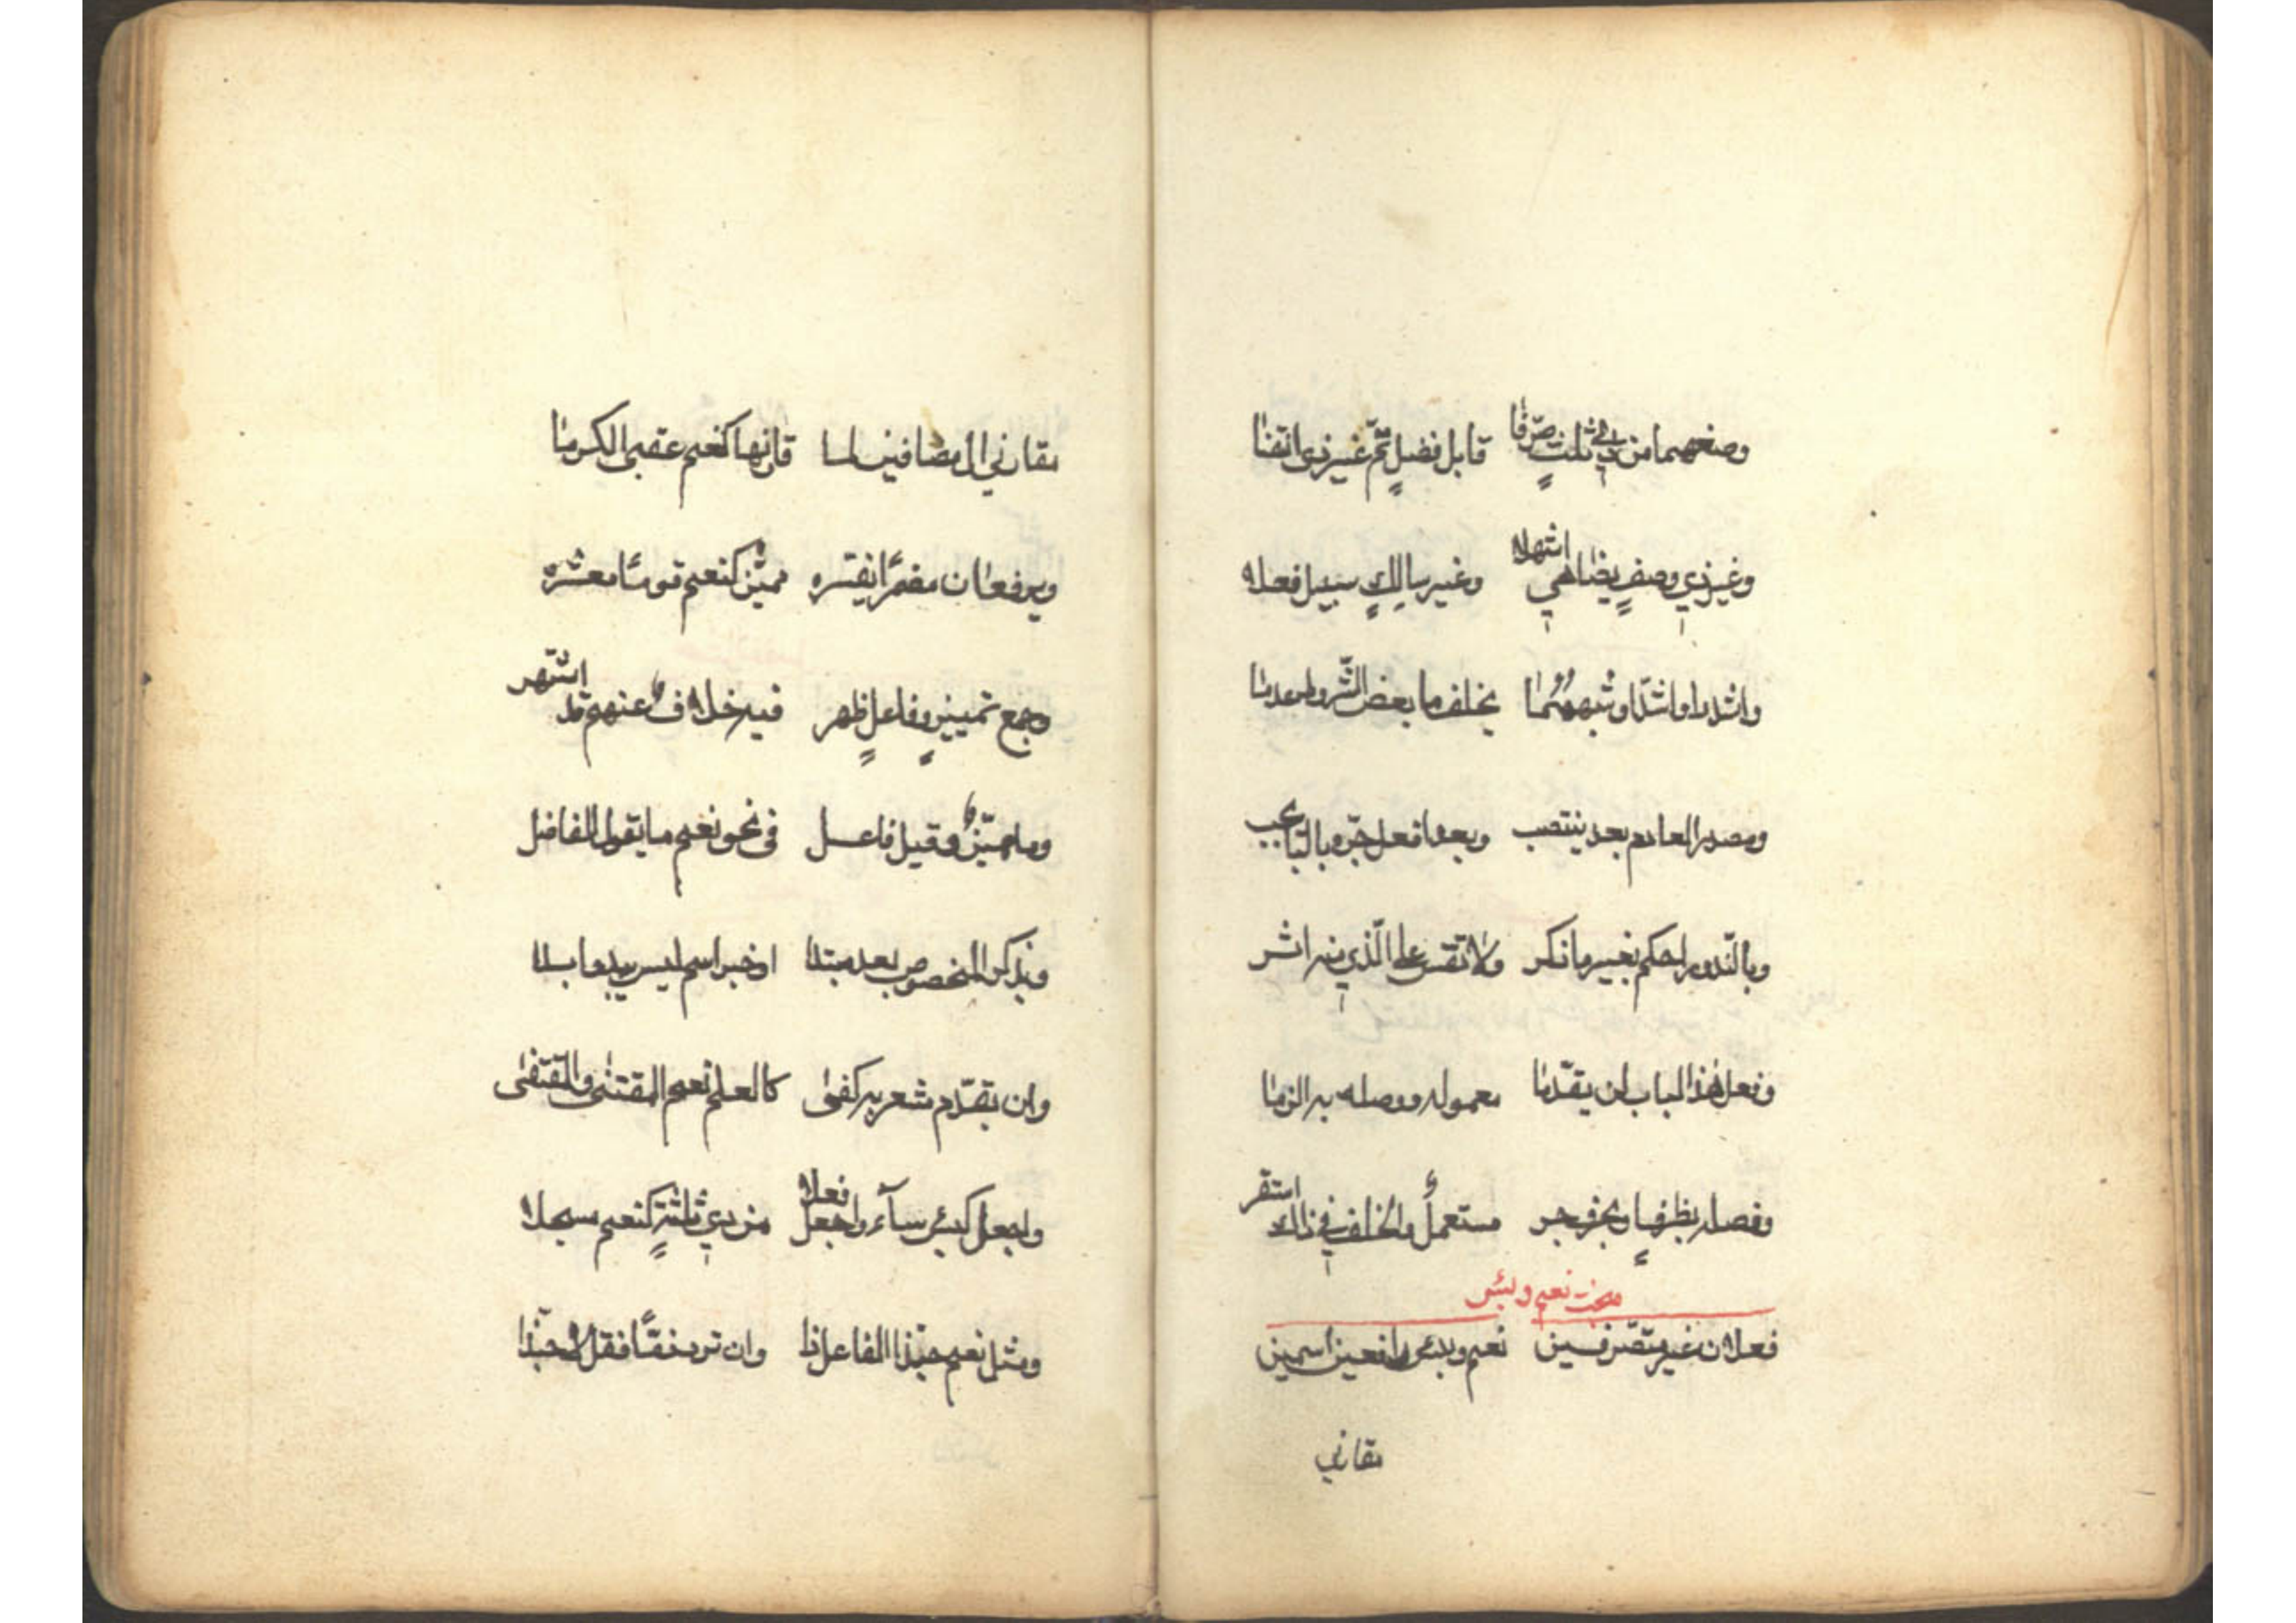 وصغهما من ذي ثلث صرّفا قابل فضلٍ تمّ غير ذي انتفا
وغير ذي وصفٍ يضاهي اشهلا وغير سالكٍ سبيل فعلا
واشدد او اشدّ او شبههما يخلف ما بعض الشّروط عدما
ومصدر العادم بعد ينتصب وبعد افعل جرّه بالبا يجب
وبالنّدور احكم بغير ما ذكر ولا تقس على الّذي منه اثر
وفعل هذا الباب لن يقدّما معموله ووصله به الزما
وفصله بظرفٍ او بحرف جر مستعملٌ والخلف في ذاك استقر
مبحث نعم وبئس
فعلان غير متصّرفين نعم وبئس رافعين اسمين
مقارني
مقارني ال مضافين لما قارنها كنعم عقبى الكرما
ويرفعان مضمرًا يفسّره مميّز كنعم قومًا معشره
وجمع تمييزٍ وفاعلٍ ظهر فيه خلافٌ عنهم قد اشتهر
وما مميّزٌ وقيل فاعل فى نحو نعم ما يقول الفاضل
ويذكر المخصوص بعد مبتدا او خبر اسم ليس يبدو ابدا
وان يقدّم مشعر به كفى كالعلم نعم المقتنى والمقتفى
واجعل كبئس سآء واجعل فعلا من ذي ثلثةٍ كنعم مسجلا
ومثل نعم حبّذا الفاعل ذا وان ترد ذمًّا فقل لا حبّذا